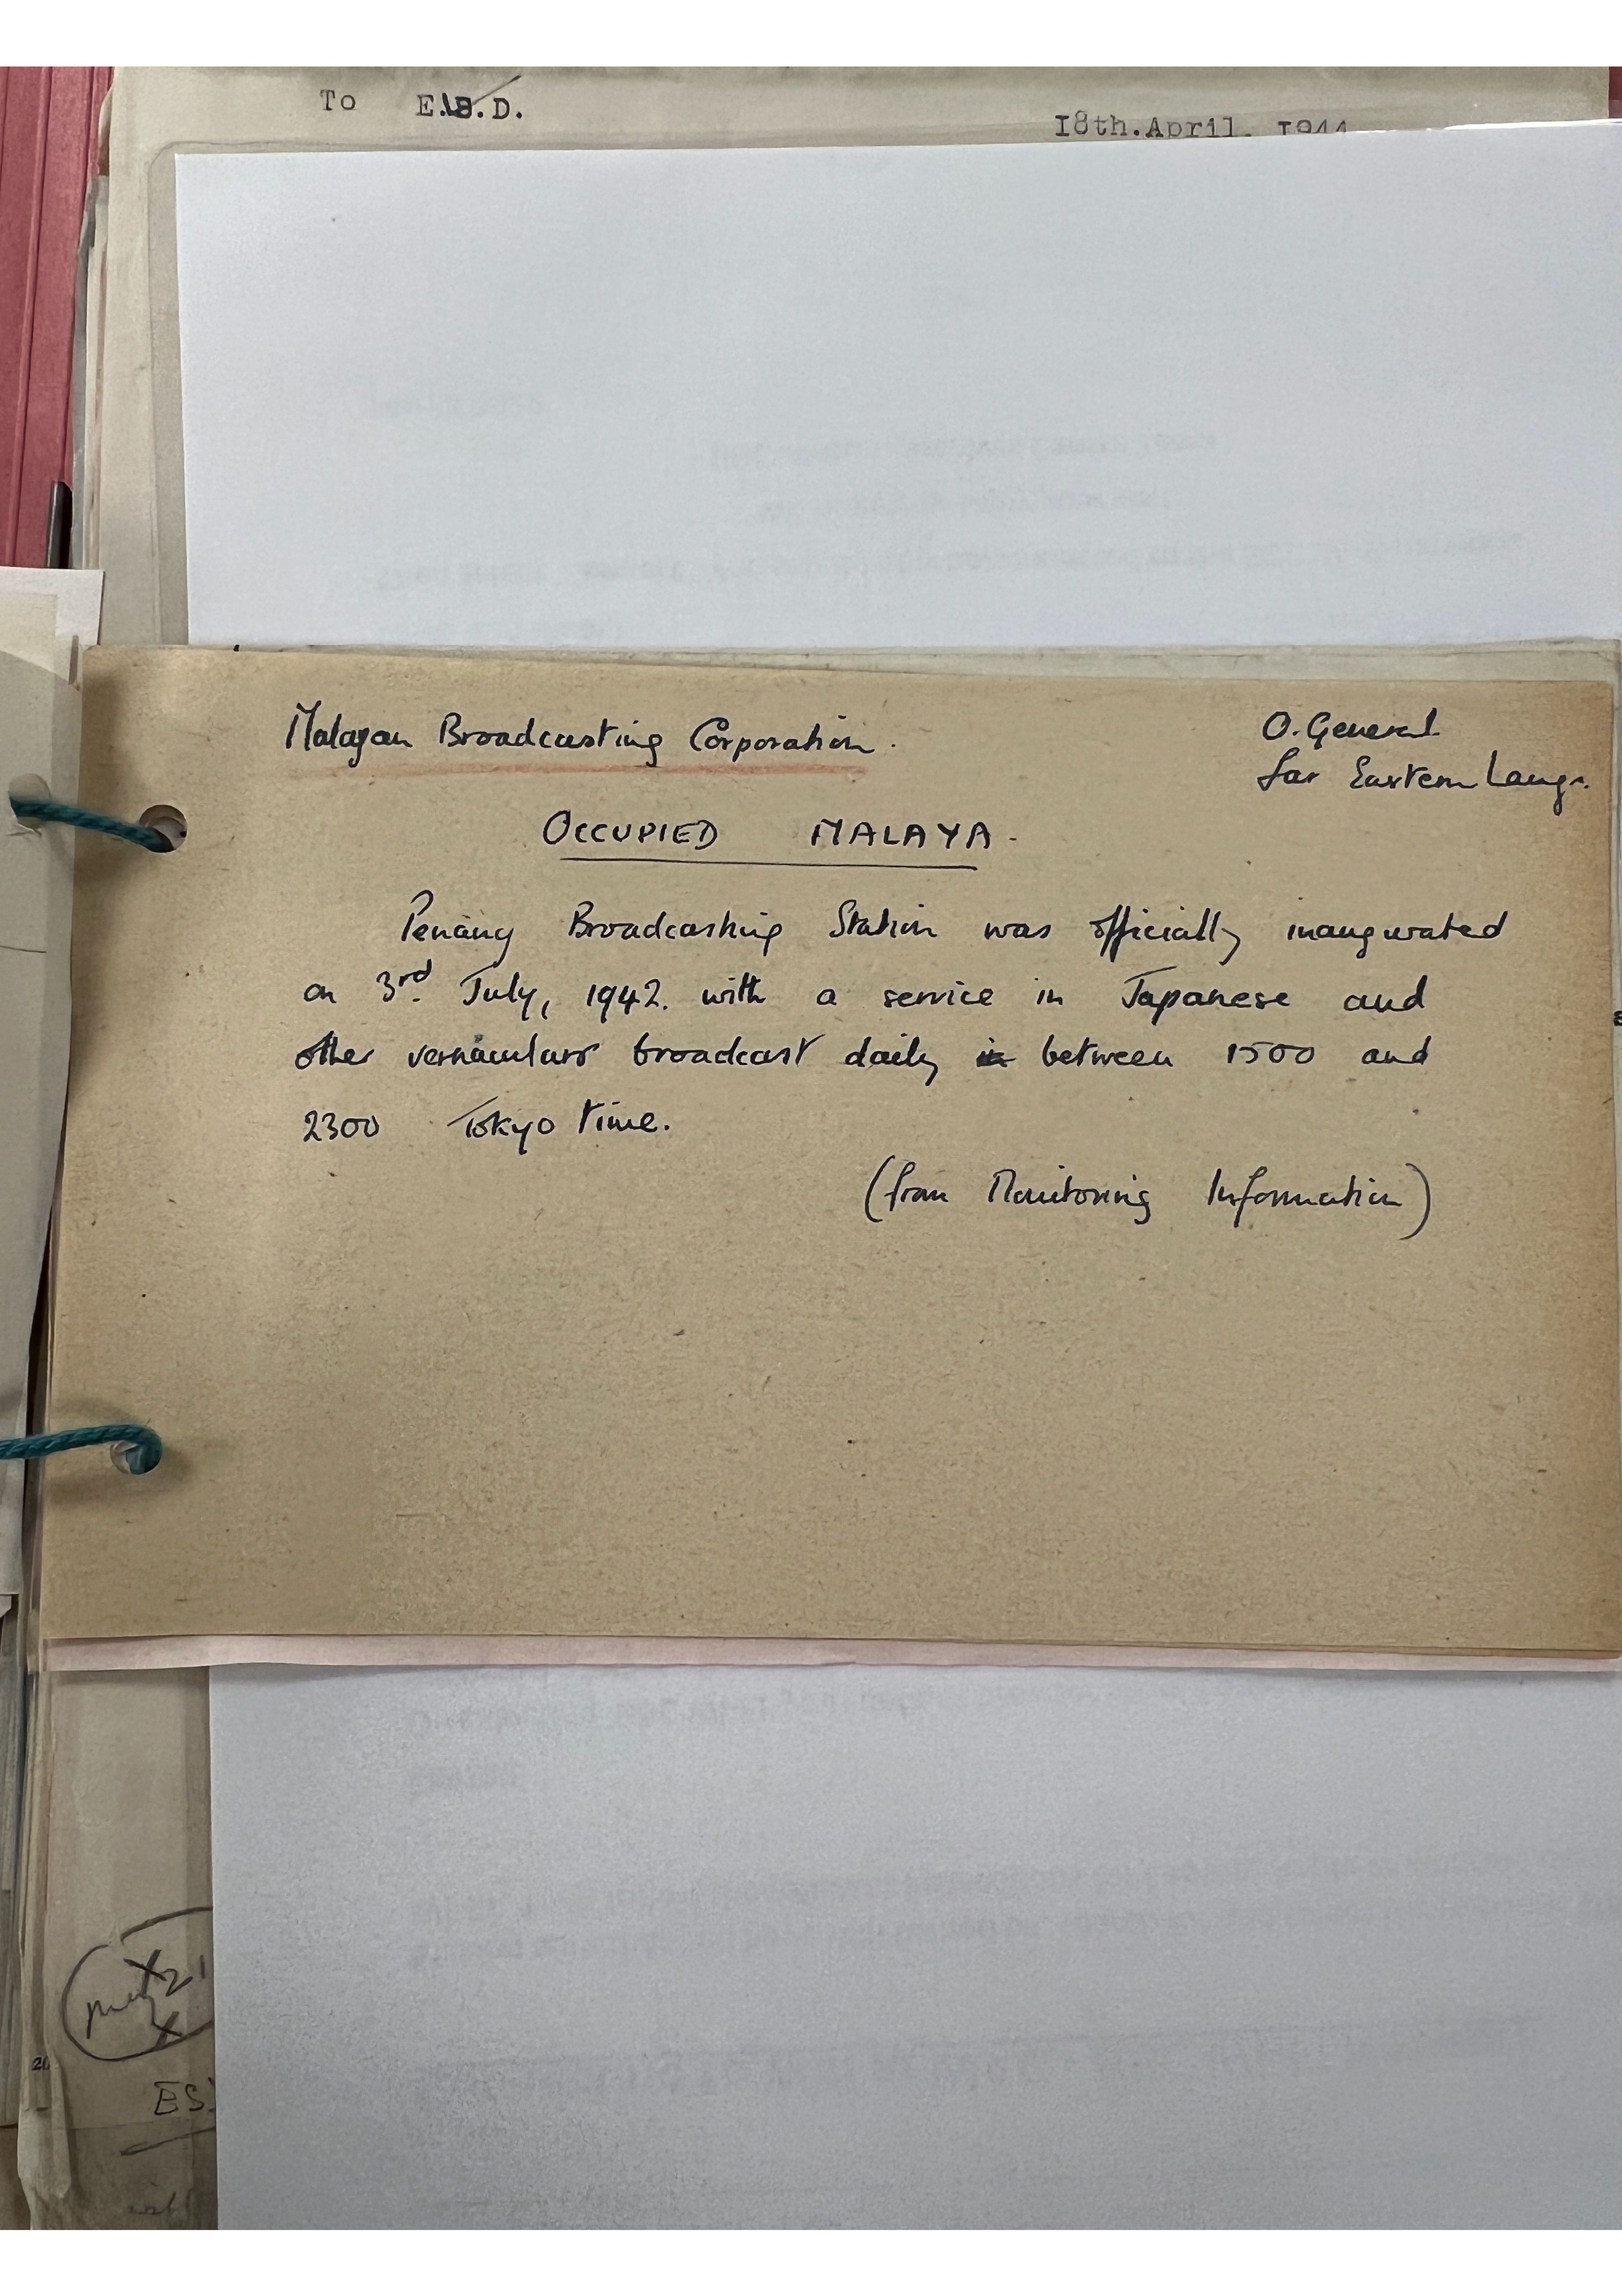 To E.S.D.
18th.April. 1944
Malayan Broadcasting Corporation.
O. General
Far Eastern Langs.
OCCUPIED MALAYA.
Penang Broadcasting Station was officially inaugurated
on 3rd. July, 1942. with a service in Japanese and
other vernaculars broadcast daily in between 1500 and
2300 Tokyo time.
(from Monitoring Information)
21
ES